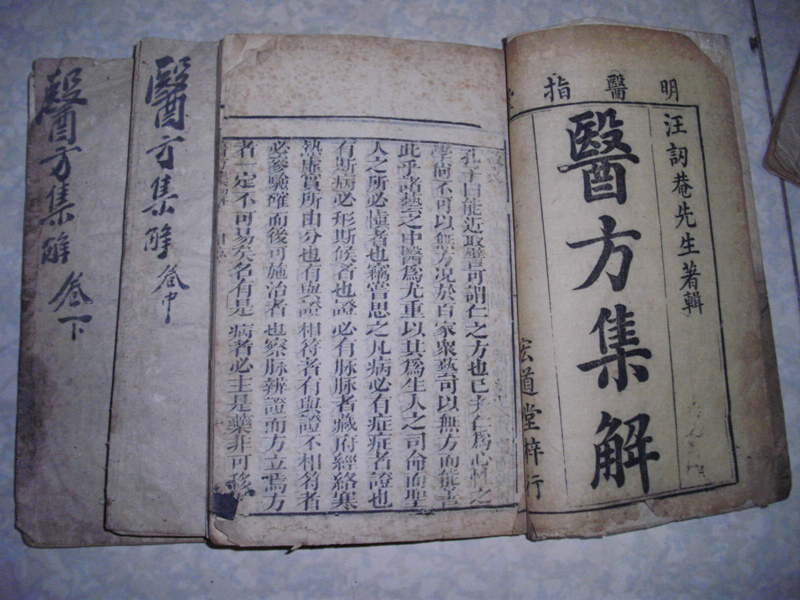 明醫指
汪訒菴先生著輯
醫方集解
宏道堂梓行
孔子曰能近取譬可謂仁之方也已夫仁爲心性之
學尚不可以無方况於百家衆藝可以無方而能善
此乎諸藝之中醫爲尤重以其爲生人之司命而聖
人之所必慎者也竊嘗思之凡病必有症症者證也
有斯病必形斯候者也證必有脉脉者藏府經絡寒
熱虛實所由分也有與證相符者有與證不相符者
必參驗確而後可施治者也察脉辨證而方立焉方
者一定不可易矣名有是病者必主是藥非可移
醫方集解 卷中
醫方集解 卷下